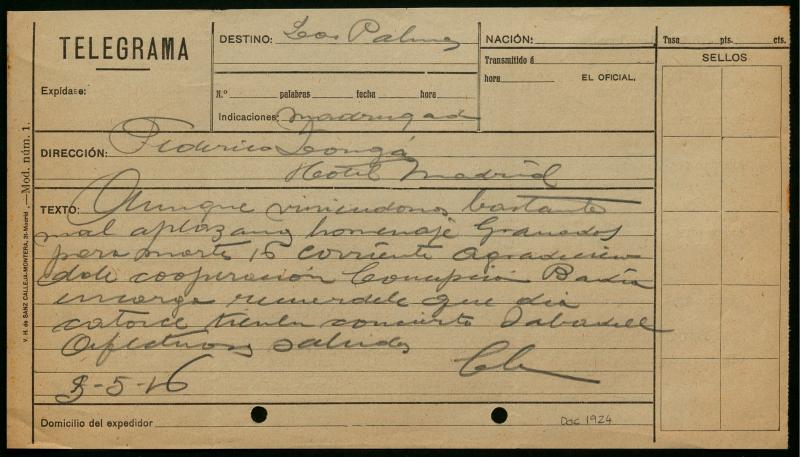 TELEGRAMA
Expídase:
DESTINO: Las Palmas
N.º palabras fecha hora
Indicaciones: madrugada
NACIÓN:
Transmitido á
hora EL OFICIAL,
Tasa pts. cts.
SELLOS
DIRECCIÓN: Federico Longá
Hotel Madrid
TEXTO: Aunque viniendonos bastante
mal aplazamos homenaje Granados
para martes 16 corriente agradecien
dole cooperación Concepción Badía
encarga recuerdele que dia
catorce tienen concierto Sabadell
Afectuosos saludos
3-5-16
Domicilio del expedidor
Doc 1924
V. H. de SANZ CALLEJA-MONTERA, 31-Madrid.—Mod. núm. 1.